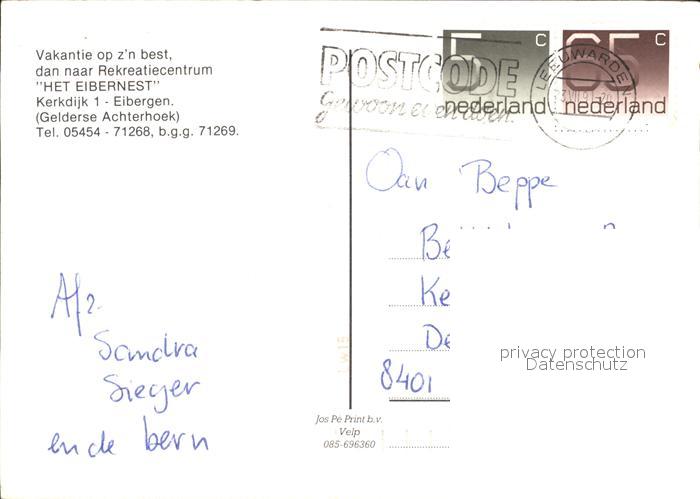 Vakantie op z'n best,
dan naar Rekreatiecentrum
"HET EIBERNEST"
Kerkdijk 1 - Eibergen.
(Gelderse Achterhoek)
Tel. 05454 - 71268, b.g.g. 71269.
POSTCODE
gewoon even doen.
5 C
nederland
65 C
nederland
LEEUWARDEN
Aan Beppe
Be
Ke
De
8401
privacy protection
Datenschutz
Afz.
Sandra
Sieger
en de bern
Jos Pé Print b.v.
Velp
085-696360